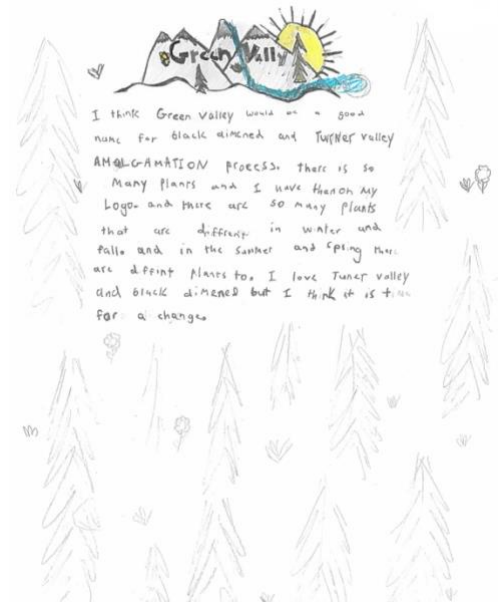 Green Vally
I think Green valley would be a good
name for black aimened and Turner valley
AMALGAMATION process. there is so
Many plants and I have them on My
Logo. and there are so many plants
that are diffrent in winter and
fall. and in the summer and Spring there
are diffint plants to. I love Tuner valley
and black dimened but I think it is time
for a change.